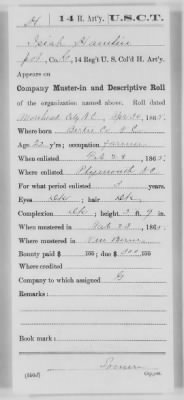 H 14 H. Art'y. U.S.C.T.
Isiah Hamlin
Pvt, Co. G, 14 Reg't U. S. Col'd H. Art'y.
Appears on
Company Muster-in and Descriptive Roll
of the organization named above. Roll dated
Morehead City N.C. 186 5.
Where born Bertie Co N.C.
Age 22 y'rs; occupation Farmer
When enlisted Feb 28, 186 5.
Where enlisted Plymouth N.C.
For what period enlisted 3 years.
Eyes Dk; hair Dk
Complexion Dk; height 5 ft. 9 in.
When mustered in Feb 28, 186 5.
Where mustered in New Berne
Bounty paid $ 100; due $ 100
Where credited
Company to which assigned G
Remarks:
Book mark:
Copyist.